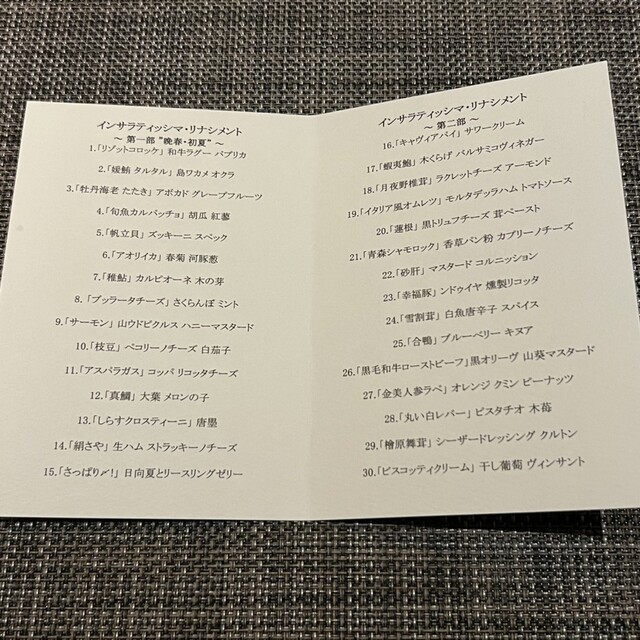 インサラティッシマ・リナシメント
～ 第一部 "晩春・初夏" ～
1.「リゾットコロッケ」 和牛ラグー パプリカ
2.「媛鮪 タルタル」 島ワカメ オクラ
3.「牡丹海老 たたき」 アボカド グレープフルーツ
4.「旬魚カルパッチョ」 胡瓜 紅蓼
5.「帆立貝」 ズッキーニ スペック
6.「アオリイカ」 春菊 河豚葱
7.「稚鮎」 カルピオーネ 木の芽
8.「ブッラータチーズ」 さくらんぼ ミント
9.「サーモン」 山ウドピクルス ハニーマスタード
10.「枝豆」 ペコリーノチーズ 白茄子
11.「アスパラガス」 コッパ リコッタチーズ
12.「真鯛」 大葉 メロンの子
13.「しらすクロスティーニ」 唐墨
14.「絹さや」 生ハム ストラッキーノチーズ
15.「さっぱり〆!」 日向夏とリースリングゼリー
インサラティッシマ・リナシメント
～ 第二部 ～
16.「キャヴィアパイ」 サワークリーム
17.「蝦夷鮑」 木くらげ バルサミコヴィネガー
18.「月夜野椎茸」 ラクレットチーズ アーモンド
19.「イタリア風オムレツ」 モルタデッラハム トマトソース
20.「蓮根」 黒トリュフチーズ 茸ペースト
21.「青森シャモロック」 香草パン粉 カプリーノチーズ
22.「砂肝」 マスタード コルニッション
23.「幸福豚」 ンドゥイヤ 燻製リコッタ
24.「雪割茸」 白魚唐辛子 スパイス
25.「合鴨」 ブルーベリー キヌア
26.「黒毛和牛ローストビーフ」 黒オリーヴ 山葵マスタード
27.「金美人参ラペ」 オレンジ クミン ピーナッツ
28.「丸い白レバー」 ピスタチオ 木苺
29.「檜原舞茸」 シーザードレッシング クルトン
30.「ビスコッティクリーム」 干し葡萄 ヴィンサント